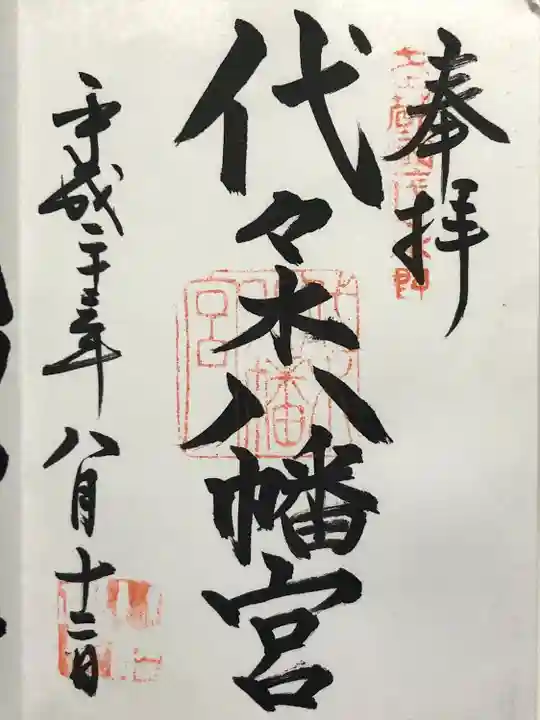 奉拝
代々木八幡宮
平成二十三年八月十二日